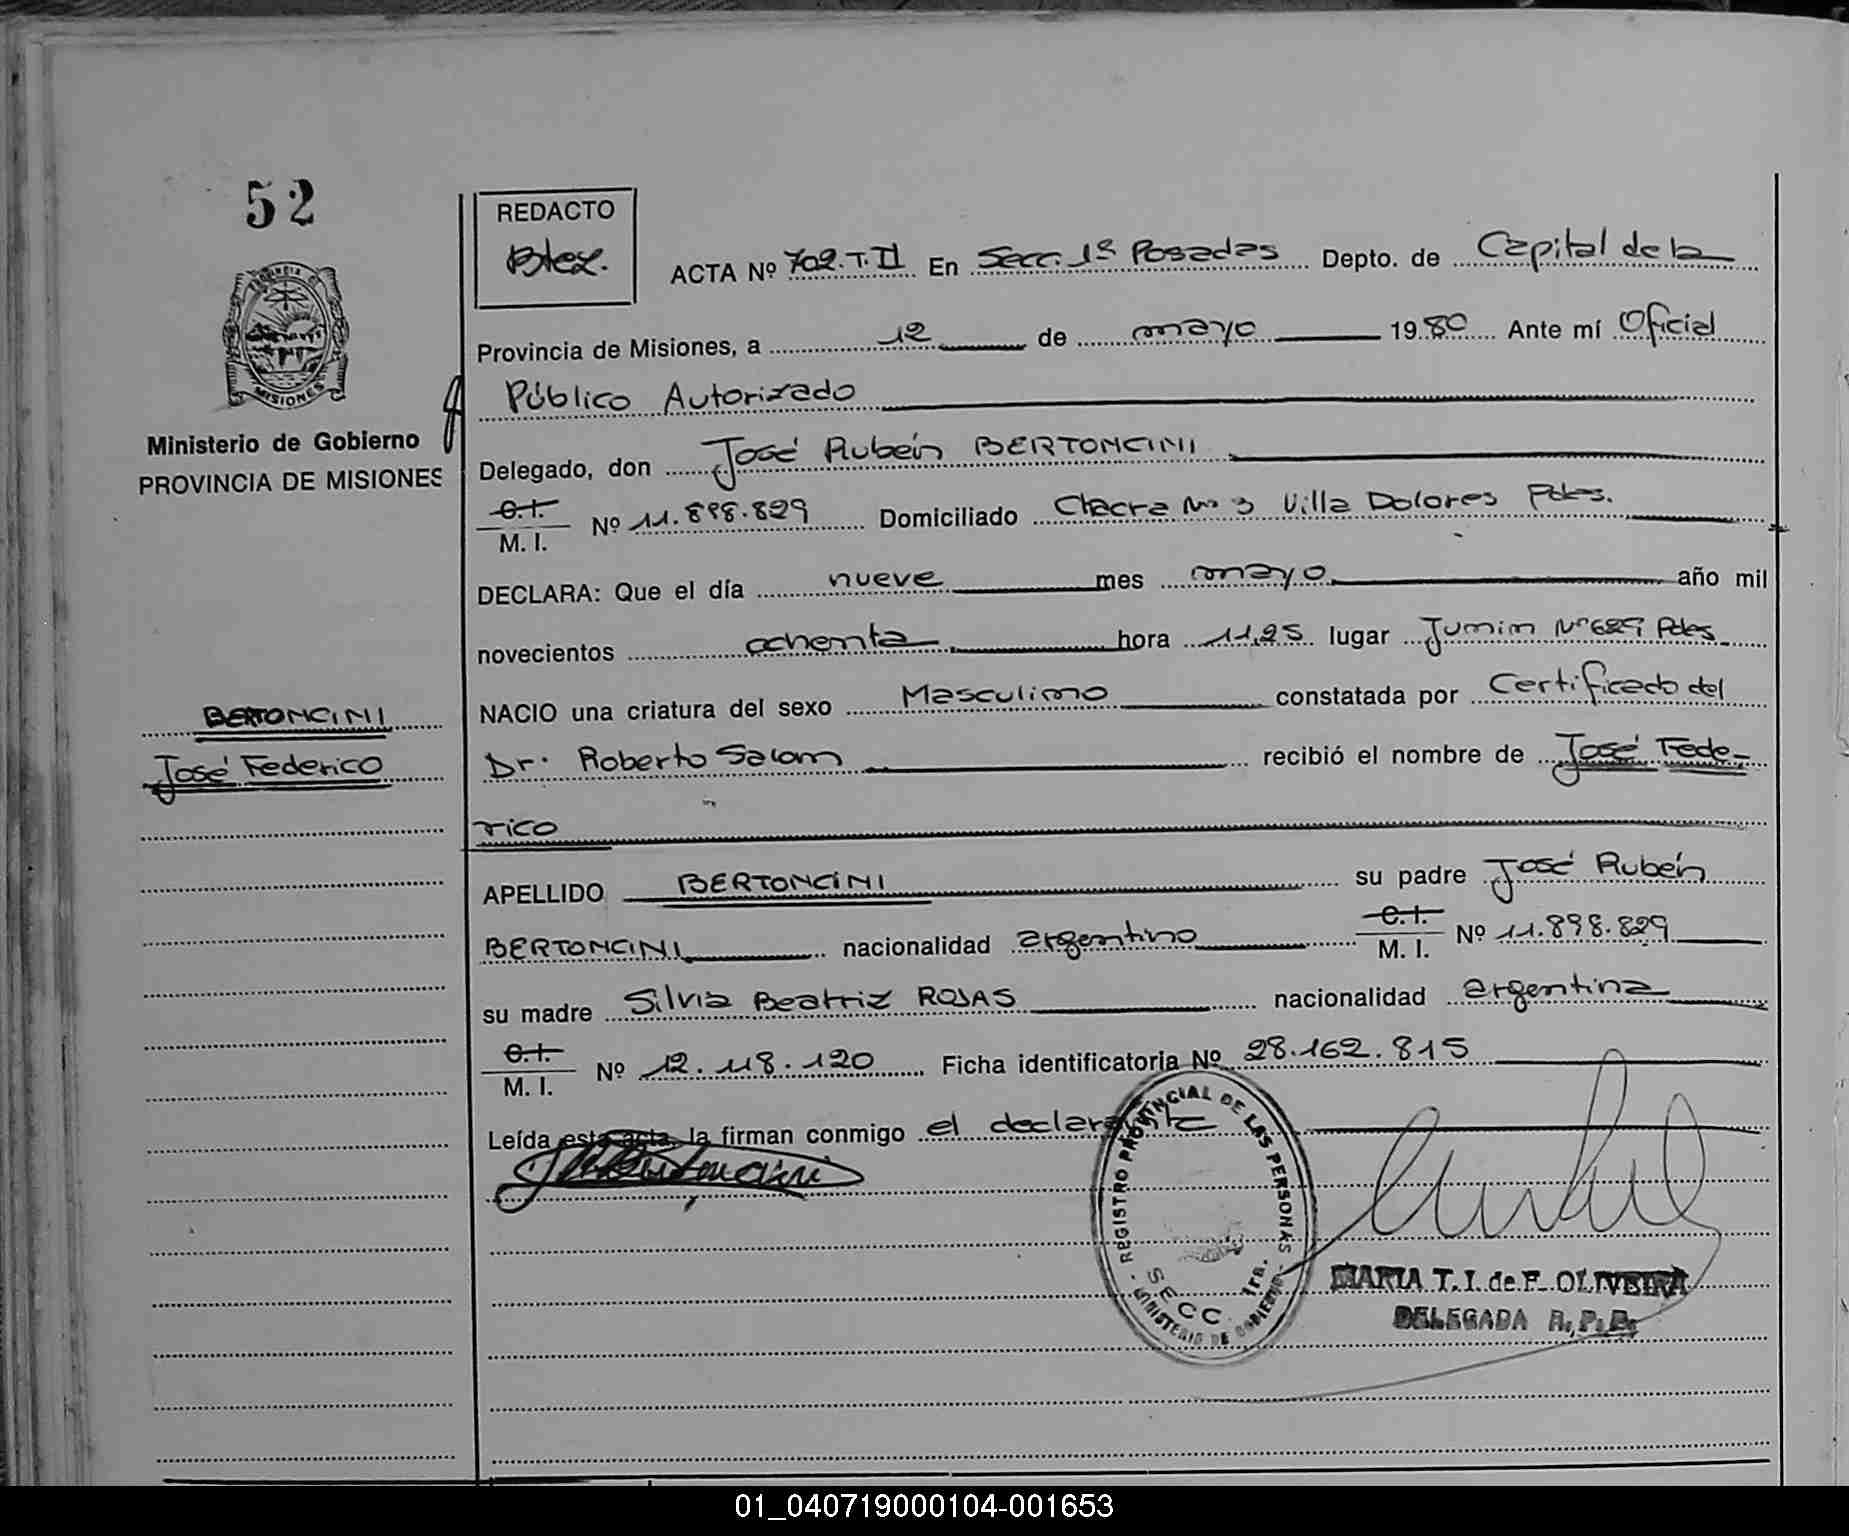 52
Ministerio de Gobierno
PROVINCIA DE MISIONES
BERTONCINI
José Federico
REDACTO
ACTA Nº 702.T.II En Secc. 1ª Posadas Depto. de Capital de la
Provincia de Misiones, a 12 de mayo 1980 Ante mí Oficial
Público Autorizado
Delegado, don José Rubén BERTONCINI
C.I.
M. I. Nº 11.898.829 Domiciliado Chacra Nº 3 Villa Dolores Pdas.
DECLARA: Que el día nueve mes mayo año mil
novecientos ochenta hora 11,25 lugar Junin Nº 629 Pdas
NACIO una criatura del sexo Masculino constatada por Certificado del
Dr. Roberto Salom recibió el nombre de José Fede-
rico
APELLIDO BERTONCINI su padre José Rubén
BERTONCINI nacionalidad argentino C.I.
M. I. Nº 11.898.829
su madre Silvia Beatriz ROJAS nacionalidad argentina
C.I.
M. I. Nº 12.118.120 Ficha identificatoria Nº 28.162.815
Leída esta acta, la firman conmigo el declarante
REGISTRO PROVINCIAL DE LAS PERSONAS
SECC. 1ra.
MINISTERIO DE GOBIERNO
MARIA T. I. de F. OLIVEIRA
DELEGADA R.P.P.
01_040719000104-001653